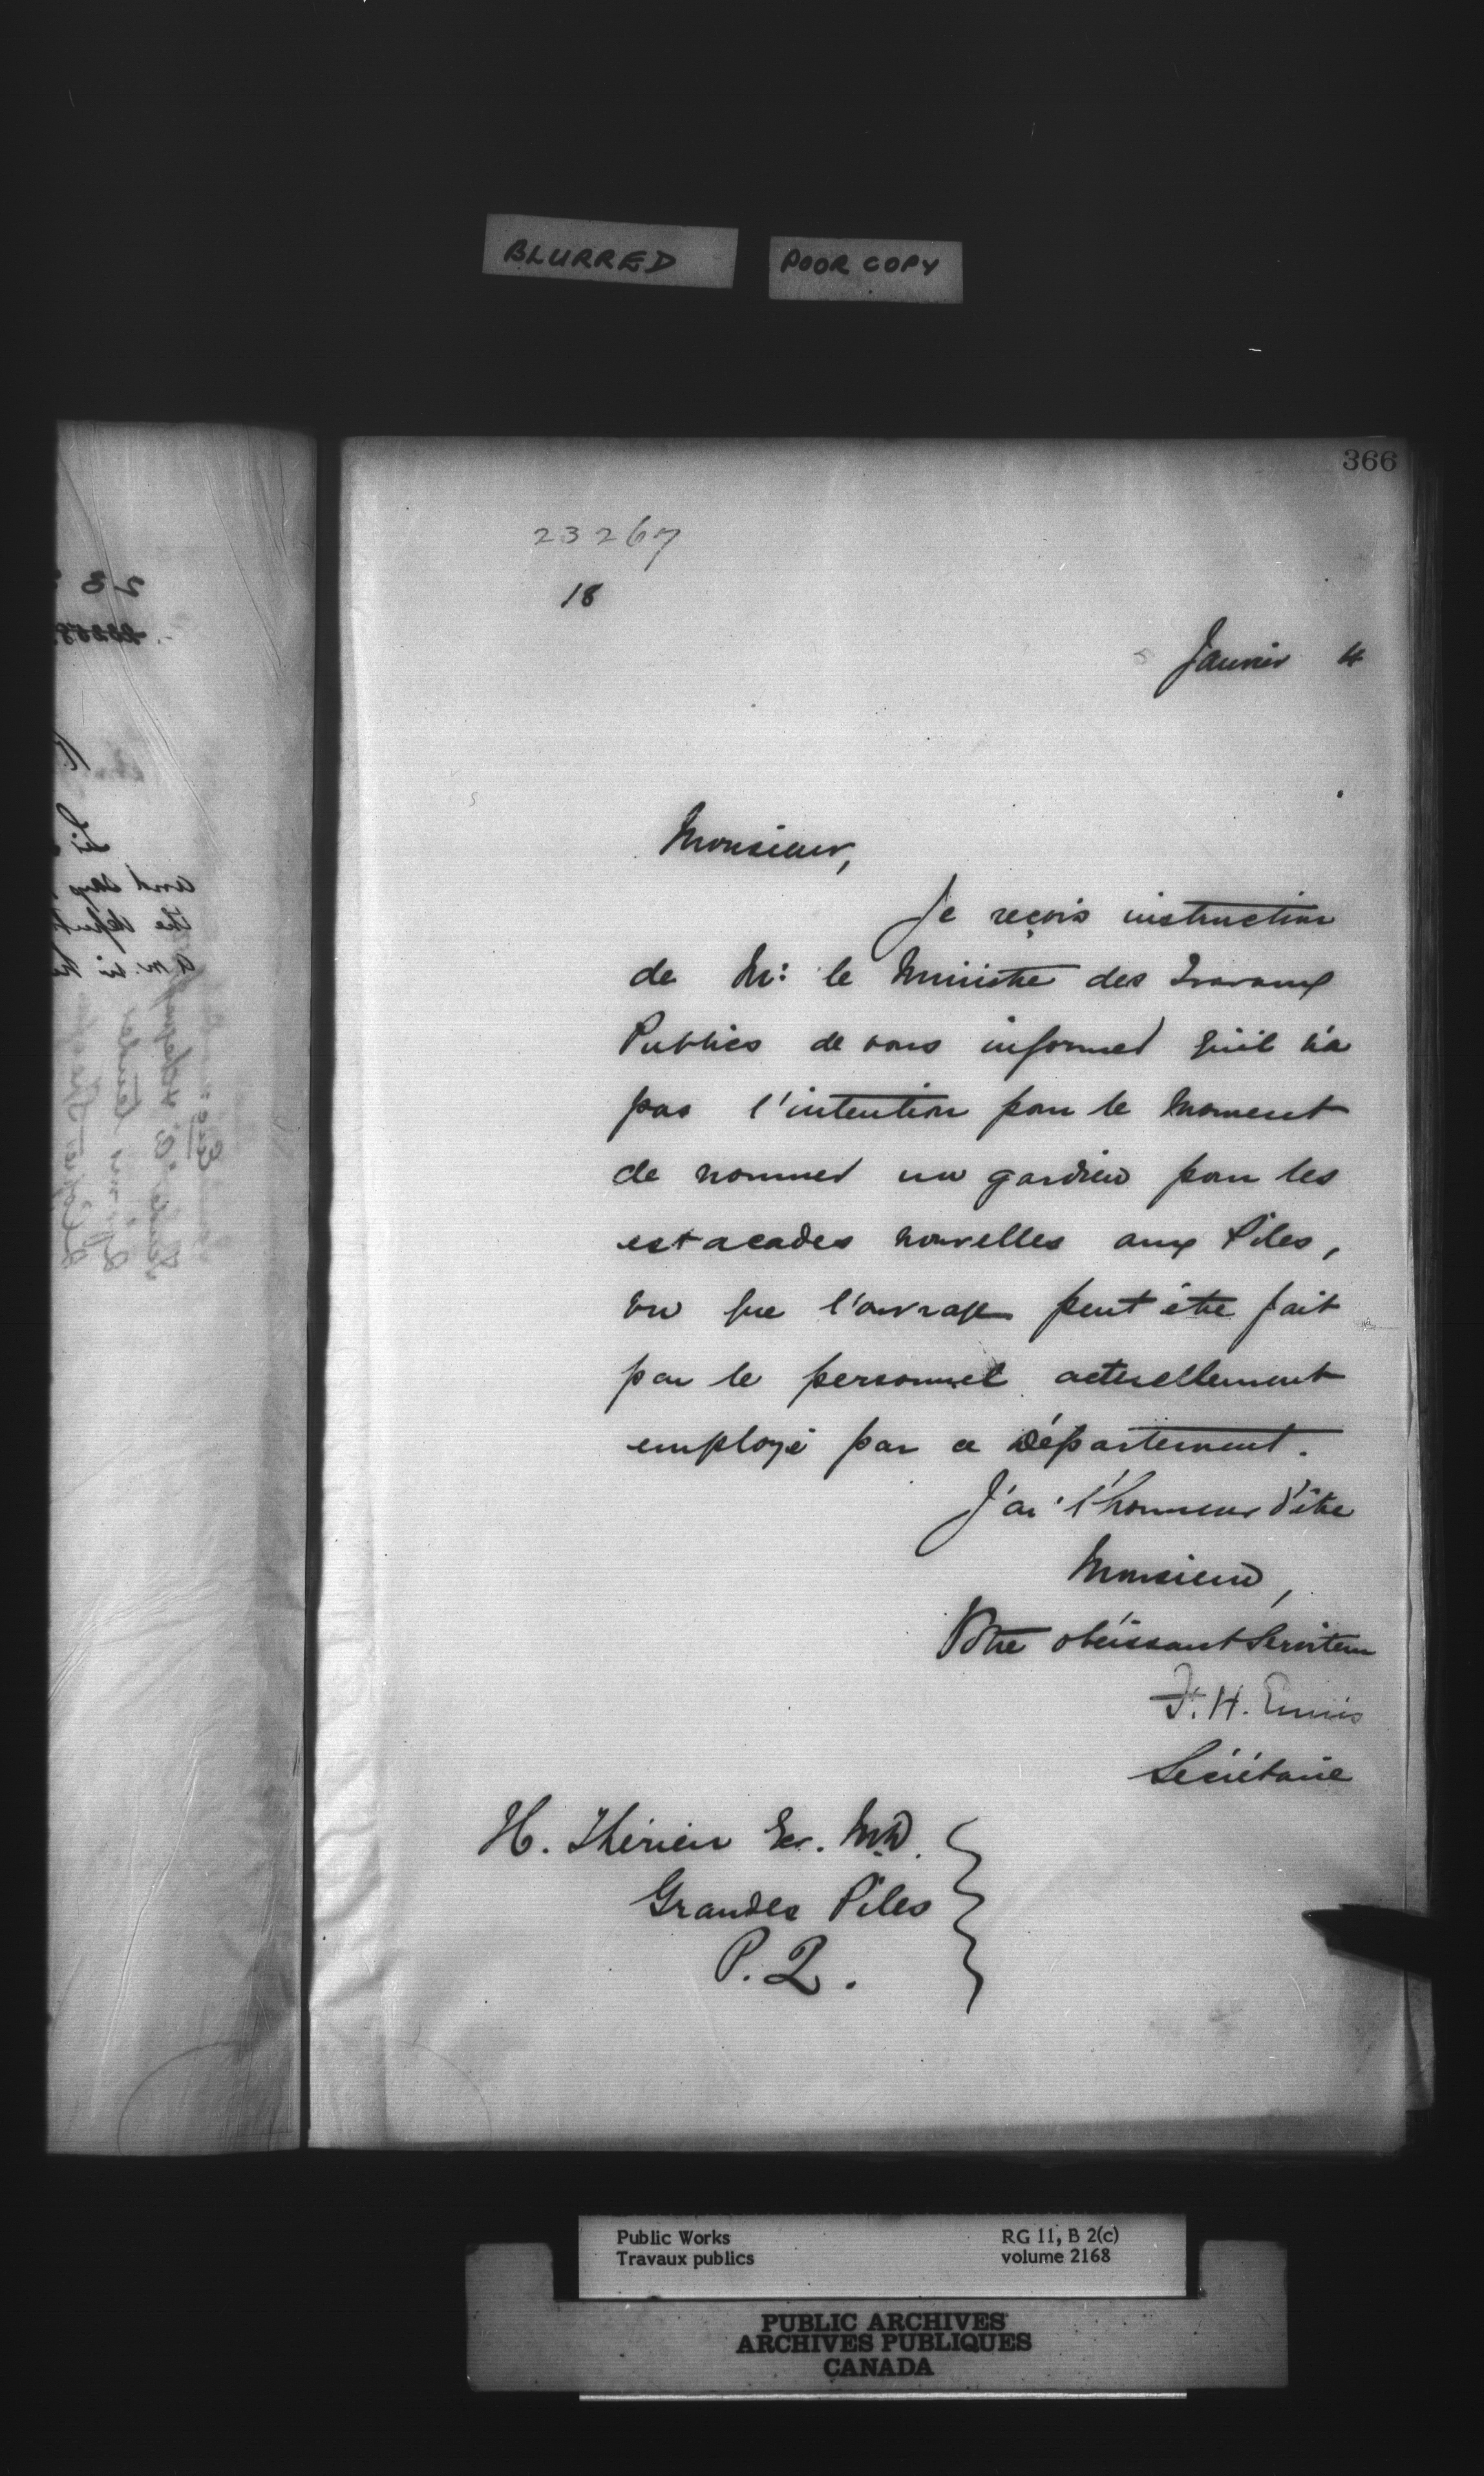 BLURRED
POOR COPY
366
23267
18
Janvier 4
Monsieur,
Je reçois instruction
de Mr: le Ministre des Travaux
Publics de vous informer qu'il n'a
pas l'intention pour le moment
de nommer un gardien pour les
estacades nouvelles aux Piles,
vu que l'ouvrage peut être fait
par le personnel actuellement
employé par ce Département.
J'ai l'honneur d'être
Monsieur,
Votre obéissant Serviteur
F. H. Ennis
Secrétaire
H. Thérien Ec. M.D.
Grandes Piles
P.Q.
Public Works
Travaux publics
RG 11, B 2(c)
volume 2168
PUBLIC ARCHIVES
ARCHIVES PUBLIQUES
CANADA